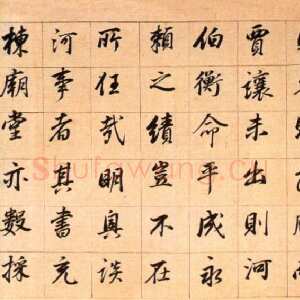 賈讓未出則河
伯衡命平成永
賴之績豈不在
所任哉明興談
河事者其書充
棟廟堂亦數採